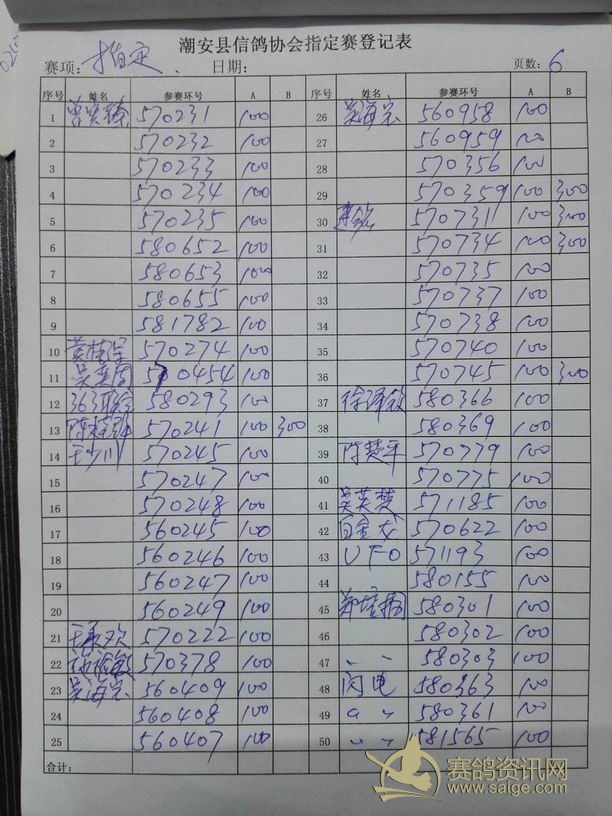 潮安县信鸽协会指定赛登记表
赛项: 指定 日期: 页数: 6
序号 姓名 参赛环号 A B 序号 姓名 参赛环号 A B
1 570231 100 26 吴海宏 560958 100
2 570232 100 27 560959 100
3 570233 100 28 570356 100
4 570234 100 29 570359 100 300
5 570235 100 30 570731 100 300
6 580652 100 31 570734 100 300
7 580653 100 32 570735 100
8 580655 100 33 570737 100
9 581782 100 34 570738 100
10 570274 100 35 570740 100
11 570454 100 36 570745 100 300
12 580293 100 37 580366 100
13 570241 100 300 38 580369 100
14 王少川 570245 100 39 陈楚平 570779 100
15 570247 100 40 570775 100
16 570248 100 41 吴英楚 571185 100
17 560245 100 42 570622 100
18 560246 100 43 UFO 571193 100
19 560247 100 44 580155 100
20 560249 100 45 580301 100
21 570222 100 46 580302 100
22 570378 100 47 〃 580303 100
23 吴海宏 560409 100 48 闪电 580363 100
24 560408 100 49 〃 〃 580361 100
25 560407 100 50 〃 〃 581565 100
合计:
赛鸽资讯网
www.saige.com